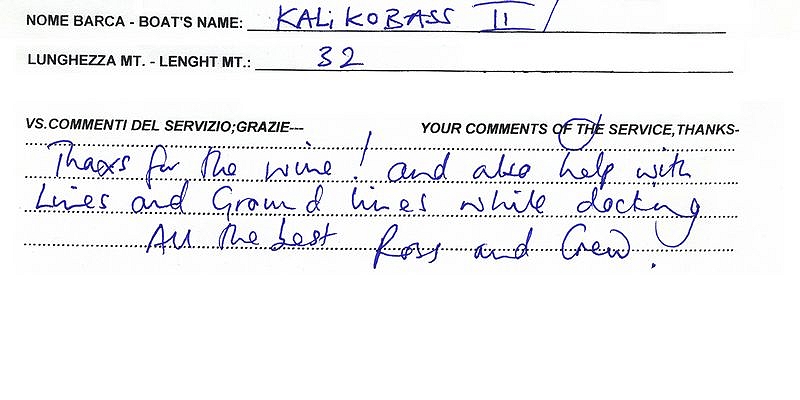 NOME BARCA - BOAT'S NAME: KALiKOBASS II
LUNGHEZZA MT. - LENGHT MT.: 32
VS.COMMENTI DEL SERVIZIO;GRAZIE--- YOUR COMMENTS OF THE SERVICE,THANKS-
Thanxs for the wine! and also help with
Lines and Ground lines while docking
All the best Ross and Crew.